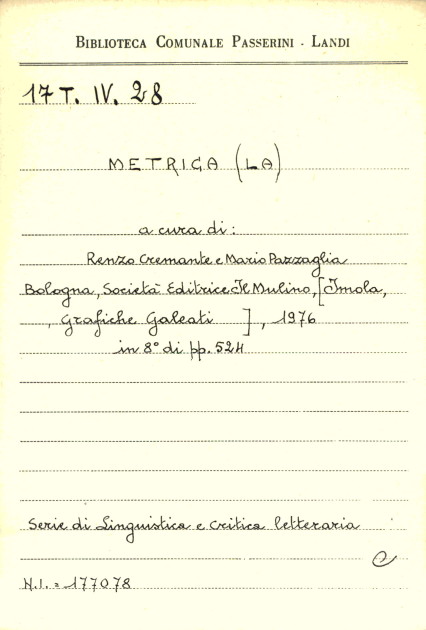 BIBLIOTECA COMUNALE PASSERINI - LANDI
17 T. IV. 28
METRICA (LA)
a cura di:
Renzo Cremante e Mario Pazzaglia
Bologna, Società Editrice Il Mulino, [Imola,
, Grafiche Galeati ], 1976
in 8° di pp. 524
Serie di Linguistica e critica letteraria
N.I. = 177078